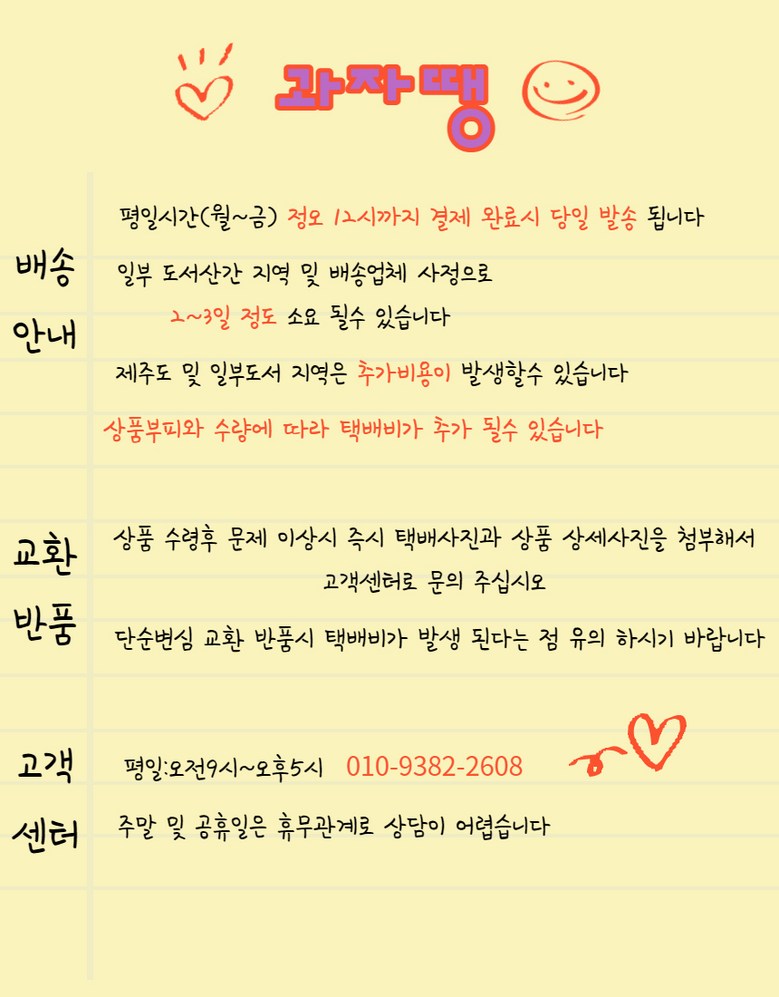 과자땡
배송
안내
평일시간(월~금) 정오 12시까지 결제 완료시 당일 발송 됩니다
일부 도서산간 지역 및 배송업체 사정으로
2~3일 정도 소요 될수 있습니다
제주도 및 일부도서 지역은 추가비용이 발생할수 있습니다
상품부피와 수량에 따라 택배비가 추가 될수 있습니다
교환
반품
상품 수령후 문제 이상시 즉시 택배사진과 상품 상세사진을 첨부해서
고객센터로 문의 주십시오
단순변심 교환 반품시 택배비가 발생 된다는 점 유의 하시기 바랍니다
고객
센터
평일:오전9시~오후5시 010-9382-2608
주말 및 공휴일은 휴무관계로 상담이 어렵습니다